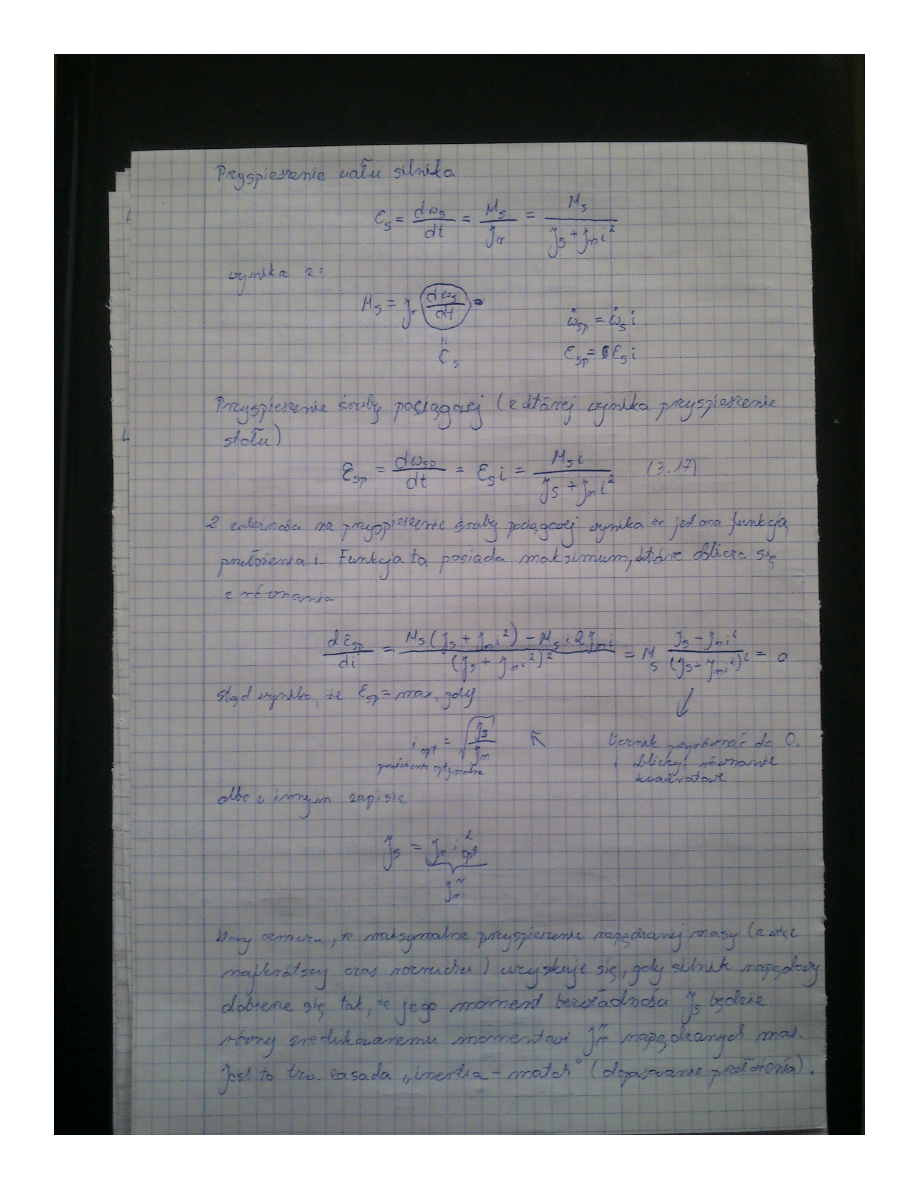 Przyspieszenie wału silnika
ε_s = dω_s/dt = M_s/J_r = M_s/(J_s + J_m i²)
wynika z:
M_s = J_r dω_s/dt
ω̇_sp = ω̇_s i
ε_s
ε_sp = ε_s i
Przyspieszenie śruby pociągowej (z której wynika przyspieszenie
stołu)
ε_sp = dω_sp/dt = ε_s i = M_s i/(J_s + J_m i²) (3.17)
Z zależności na przyspieszenie śruby pociągowej wynika że jest ona funkcją
przełożenia i. Funkcja ta posiada maksimum, które oblicza się
z równania
dε_sp/di = (M_s(J_s + J_m i²) - M_s i 2J_m i)/(J_s + J_m i²)² = M_s (J_s - J_m i²)/(J_s - J_m i²)² = 0
stąd wynika, że ε_sp = max, gdy
i_opt = √(J_s/J_m)
przełożenie optymalne
licznik przyrównać do 0.
obliczyć równanie
kwadratowe
albo w innym zapisie
J_s = J_m · i²_opt
Wzory oznacza, że maksymalne przyspieszenie napędzanej masy (a więc
najkrótszy czas rozruchu) uzyskuje się, gdy silnik napędowy
dobierze się tak, że jego moment bezwładności J_s będzie
równy zredukowanemu momentowi napędzanych mas.
Jest to tzw. zasada „inertia-match" (dopasowanie przełożenia).